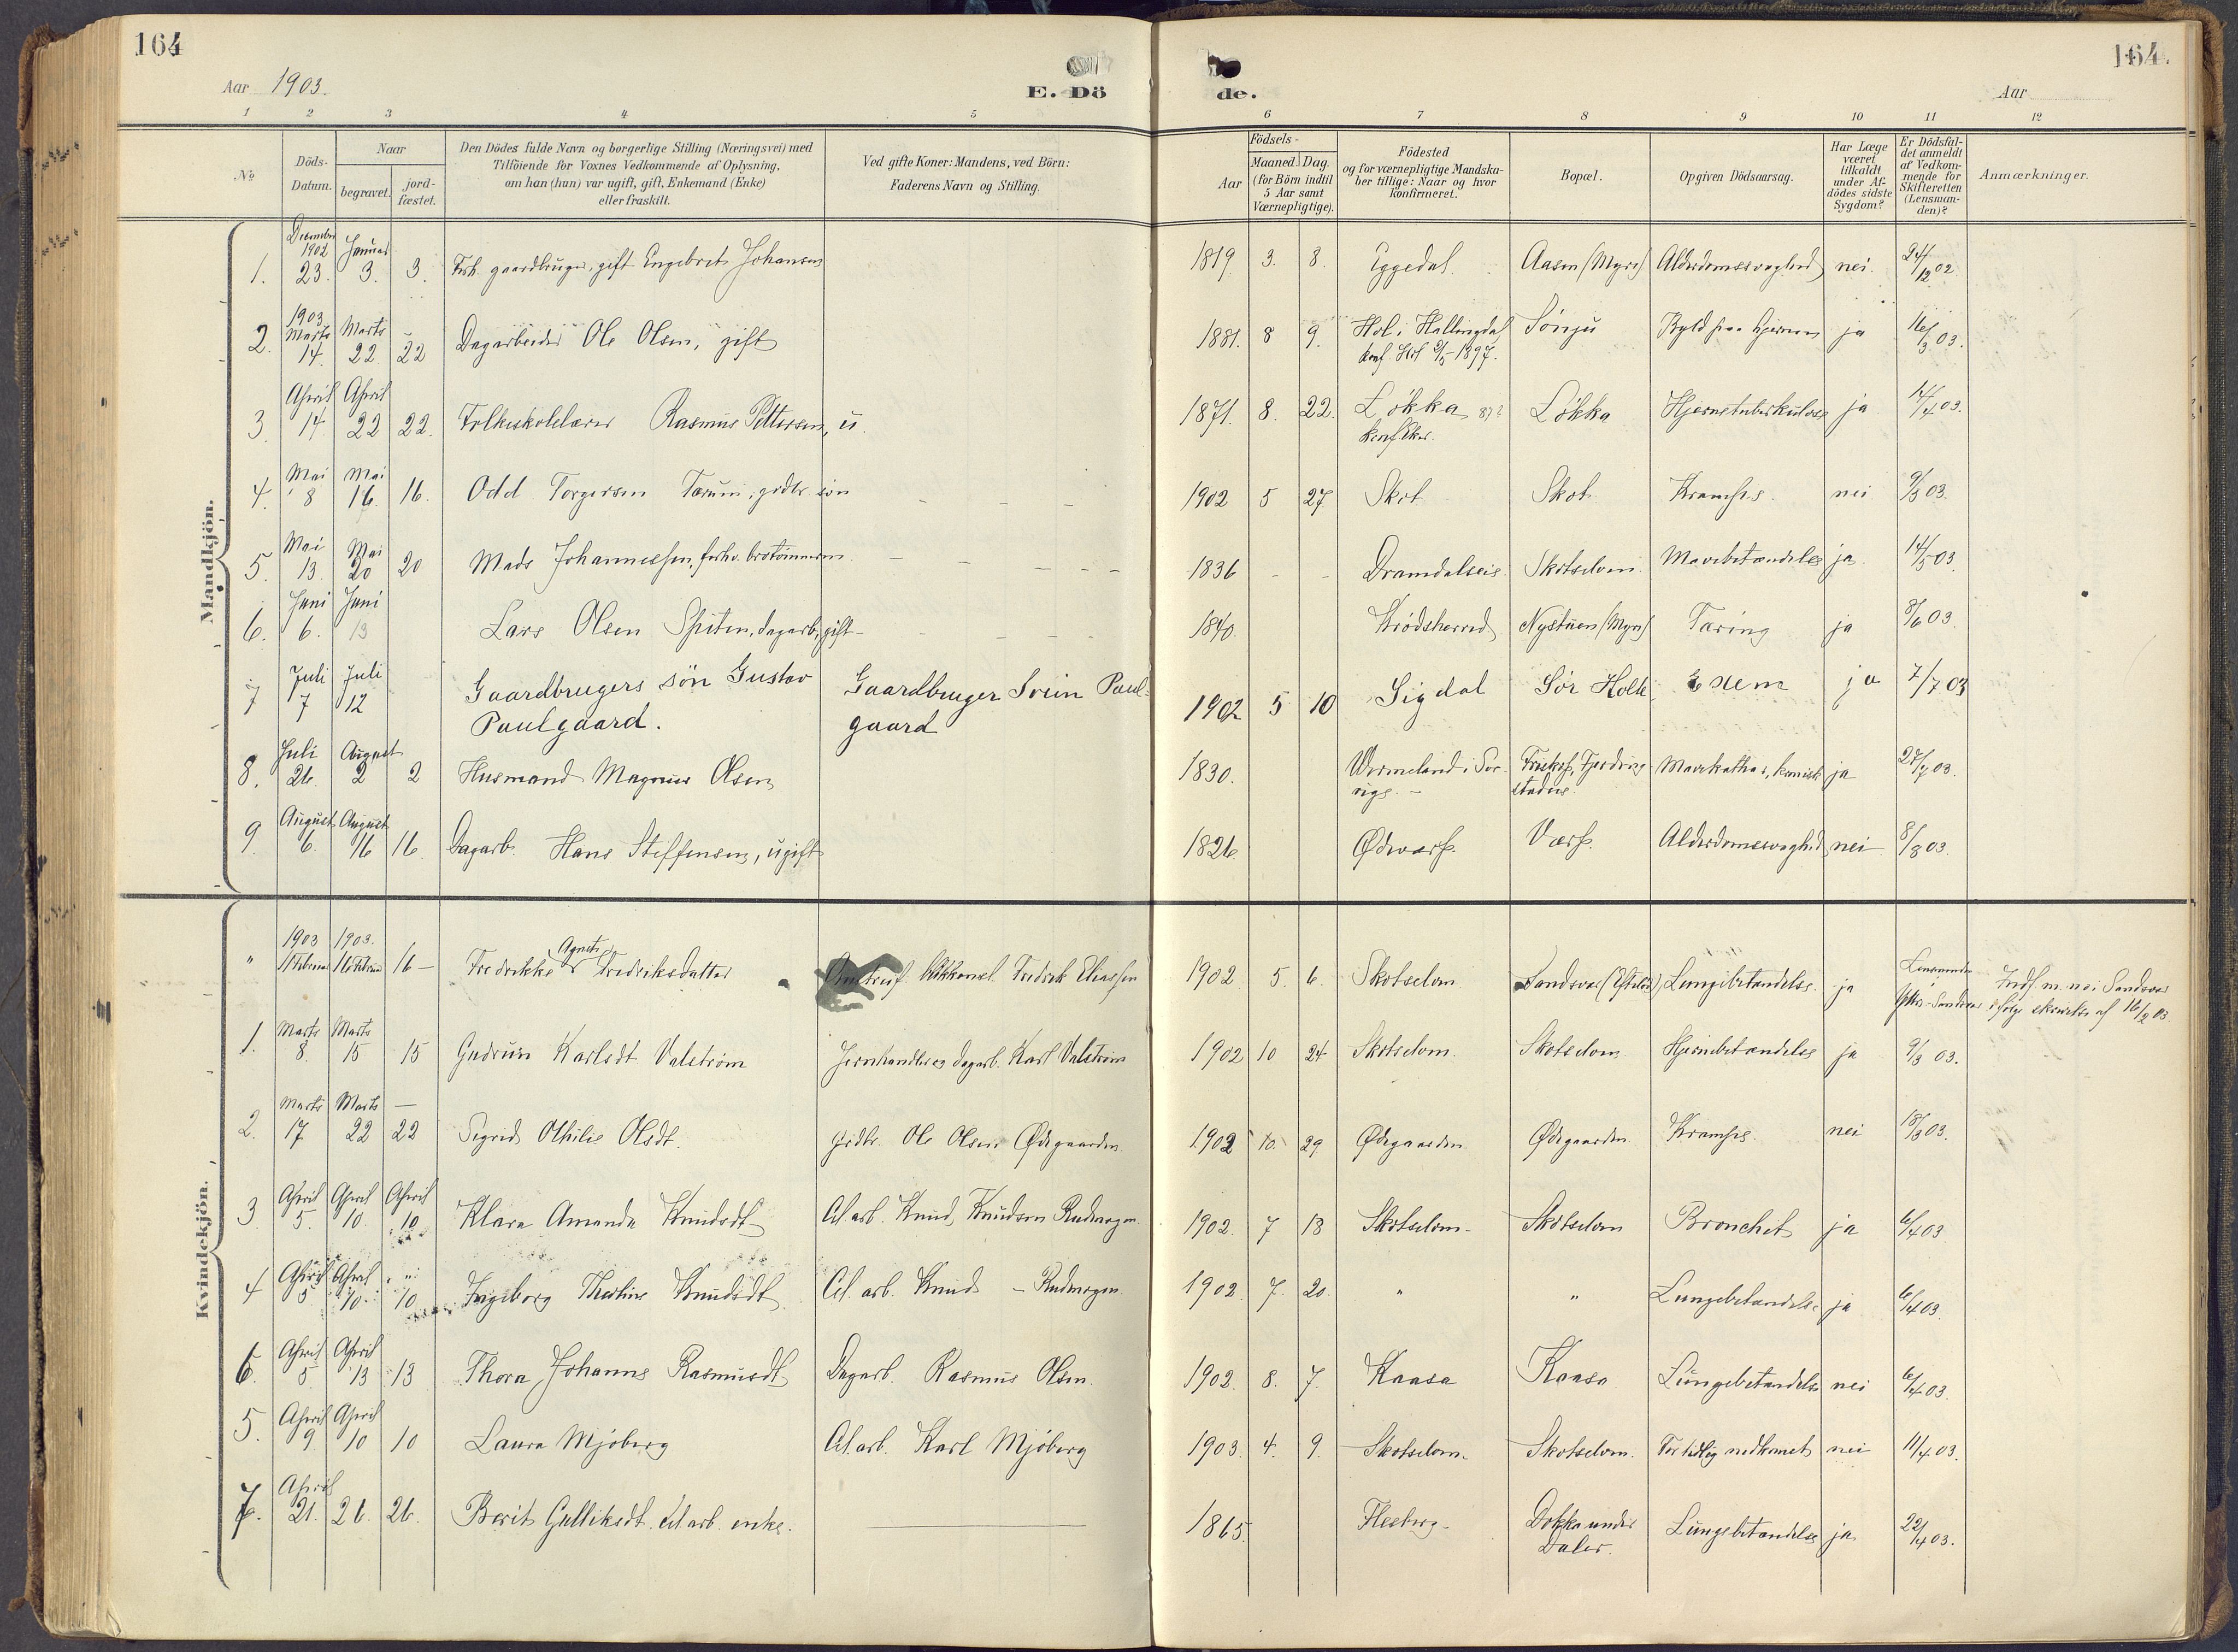 164
164.
Aar 1903.
E. Dö
de.
Aar
1 2 3 4 5 6 7 8 9 10 11 12
No
Döds-
Datum.
Naar
begravet.
jord-
fæstet.
Den Dödes fulde Navn og borgerlige Stilling (Næringsvei) med
Tilföiende for Voxnes Vedkommende af Oplysning,
om han (hun) var ugift, gift, Enkemand (Enke)
eller fraskilt.
Ved gifte Koner: Mandens, ved Börn:
Faderens Navn og Stilling.
Födsels-
Aar
Maaned. Dag.
(for Börn indtil
5 Aar samt
Værnepligtige).
Födested
og for værnepligtige Mandska-
ber tillige: Naar og hvor
konfirmeret.
Bopæl.
Opgiven Dödsaarsag.
Har Læge
været
tilkaldt
under Af-
dödes sidste
Sygdom?
Er Dödsfal-
det anmeldt
af Vedkom-
mende for
Skifteretten
(Lensman-
den)?
Anmærkninger.
Mandkjön.
December
1902 Januar
1. 23. 3. 3. Forh. gaardbruger, gift Engebret Johansen 1819 3. 8. Eggedal. Aasen (Myra) Alderdomssvaghed nei. 24/12 02
1903
Marts Marts
2. 14. 22 22 Dagarbeider Ole Olsen, gift 1881. 8 9. Hol i Hallingdal Sönju Byld paa hjernen ja 16/3 03.
konf Hol 2/5 1897.
April April
3. 14. 22 22. Folkeskolelærer Rasmus Pettersen, u. 1871. 8. 22. Lökka Lökka Hjernetuberkulose ja 14/4 03.
konf Eker.
Mai Mai
4. 8 16. 16. Odd Torgersen, grdbr. sön 1902 5 27 Skot Skot Kramper. nei 9/5 03.
Mai Mai
5. 13. 20 20 Mads Johannessen, forhv. 1836 Skotselven. Mavebetændelse ja 14/5 03.
Juni Juni
6. 6. 13 Lars Olsen Spiten, dagarb, gift 1840. Krödsherred Nystuen (Myra) Tæring ja 8/6 03.
Juli Juli
7 7 12 Gaardbrugers sön Gustav Gaardbruger Svein Paul-
Paulgaard. gaard
1902 5 10 Sigdal Sör Holte ja 7/7 03
Juli August
8. 26. 2 2 Husmand Magnus Olsen 1830. Wermeland i Sve- ja 27/7 03.
rige.
August August
9. 6. 16 16. Dagarb. Hans Steffensen, ugift 1826. Ødeverp. Verp. Alderdomssvaghed nei 8/8 03.
Kvindekjön.
1903 1903.
" 16 Februar 16 — Fredrikke Agnete Fredriksdatter Fredrik Eliassen 1902. 5. 6. Skotselven Sandsvær (Efteløt) Lungebetændelse. ja Lensmanden
Indf. m. no. i Sandsvær
ifölge skrivelse af 16/2 03.
Marts Marts
1. 8. 15 15 Gudrun Karlsdt. Valström Jernhandler og dagarb. Karl Valström 1902 10 24 Skotselven. Skotselven Hjernebetændelse ja 9/3 03.
Marts Marts —
2. 17 22 22 Sigrid Othilie Olsdt. grdbr. Ole Olsen Ødegaarden 1902 10. 29 Ødegaarden Ødegaarden Kramper. nei 18/3 03.
April April April
3. 5. 10. 10 Klara Amanda Knudsdt Cel. arb. Knud Knudsen Rudmogen. 1902. 7 13 Skotselven. Skotselven Bronchit ja 6/4 03
April April "
4 5 10. 10 Ingeborg Thorine Knudsdt Cel. arb. Knud — Rudmogen. 1902. 7. 20. " " Lungebetændelse ja 6/4 03.
April April
6. 5 13 13 Thora Johanne Rasmusdt Dagarb. Rasmus Olsen. 1902. 8. 7. Kaasa Kaasa Lungebetændelse nei 6/4 03.
April April
5. 9. 10 10 Laura Mjöberg Cel. arb. Karl Mjöberg 1903. 4. 9. Skotselven. Skotselven. For tidlig nedkomst nei 11/4 03.
April
7. 21. 26. 26. Berit Gulliksdt. cel arb. enke. 1865. Flesberg. Dokka under Lungebetændelse ja 22/4 03.
Daler.